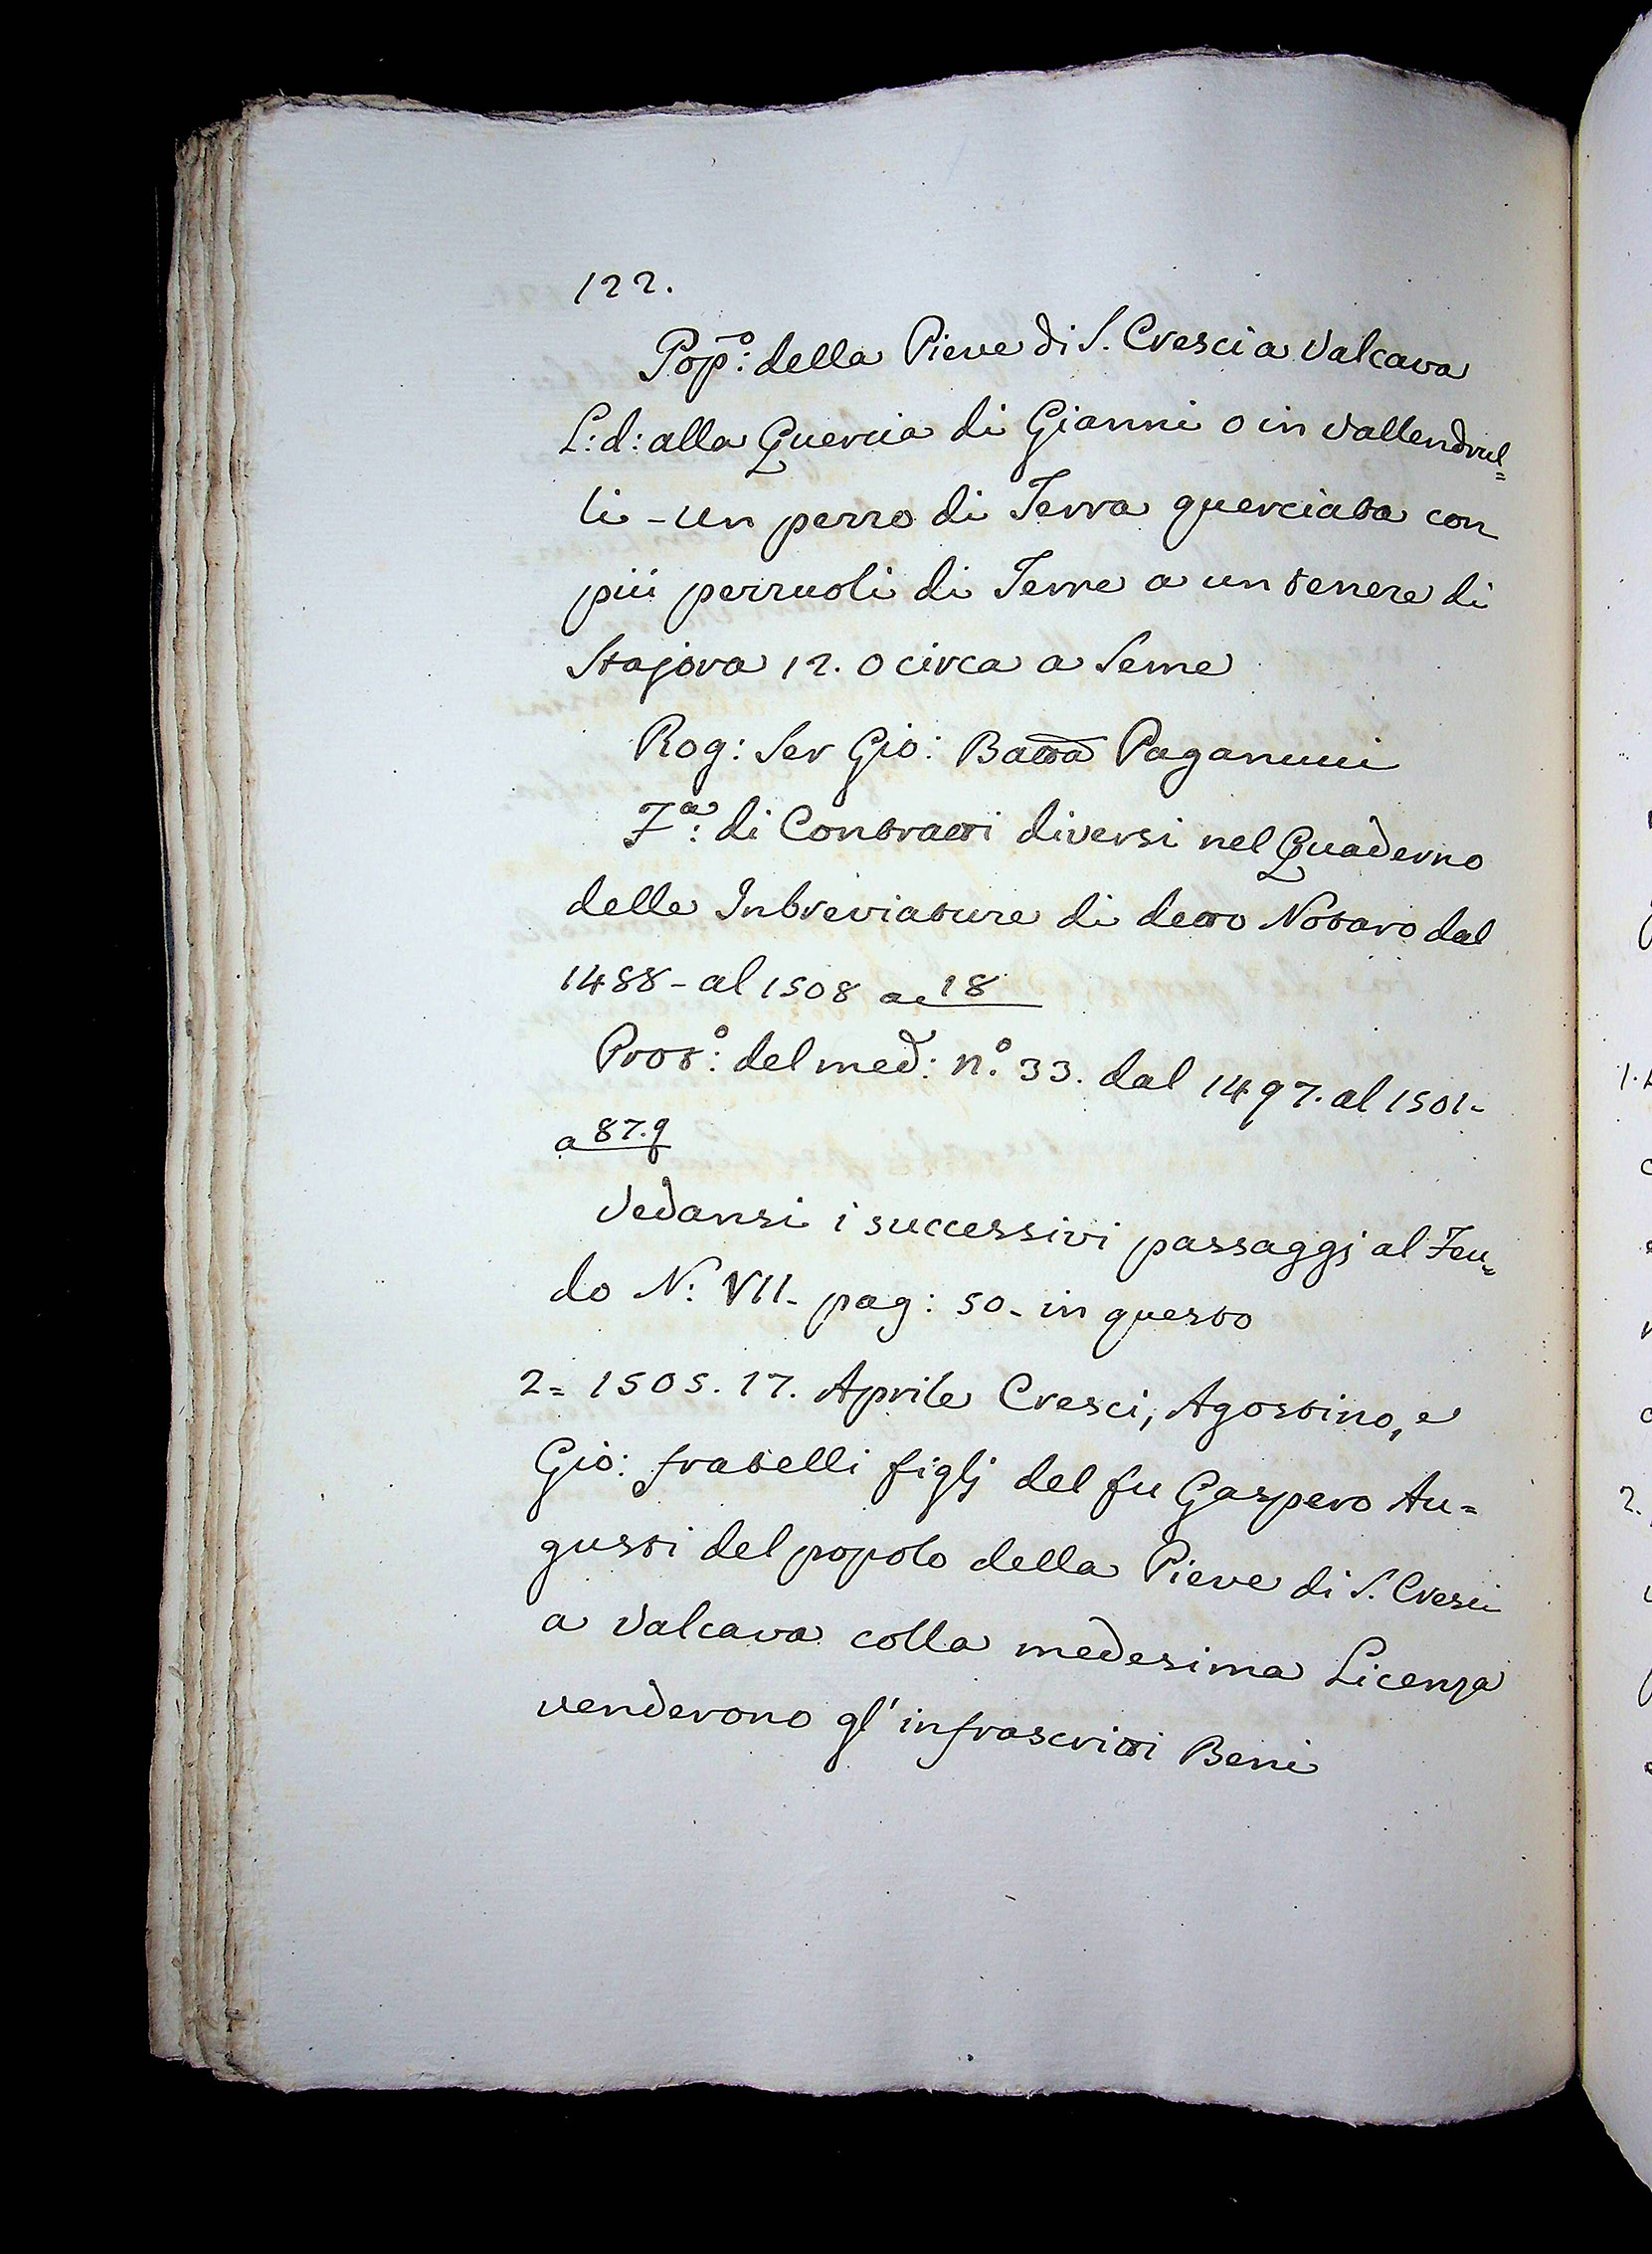 122.
Pop̃º: della Pieve di S. Cresci a Valcava
L: d: alla Quercia di Gianni o in Vallendrul=
li - un pezzo di Terra querciata con
più pezzuoli di Terre a un tenere di
Stajora 12. o circa a Seme
Rog: Ser Gio: Batta Paganucci
Fª: di Contratti diversi nel Quaderno
delle Inbreviature di detto Notaro dal
1488 - al 1508 a 18
Protº: del med: nº. 33. dal 1497. al 1501-
a 87.9
Vedansi i successivi passaggj al Fon=
do N: VII - pag: 50 - in questo
2= 1505. 17. Aprile Cresci, Agostino, e
Gio: fratelli figlj del fu Gaspero Au=
gusti del popolo della Pieve di S. Cresci
a Valcava colla medesima Licenza
venderono gl'infrascritti Beni